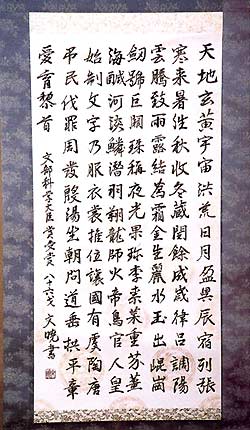 天地玄黄宇宙洪荒日月盈昃辰宿列張
寒来暑往秋收冬蔵閏餘成歳律呂調陽
雲騰致雨露結為霜金生麗水玉出崐崗
劔號巨闕珠稱夜光果珎李柰菜重芥薑
海鹹河淡鱗潜羽翔龍師火帝鳥官人皇
始制文字乃服衣裳推位讓國有虞陶唐
吊民伐罪周發殷湯坐朝問道垂拱平章
愛育黎首
文部科学大臣賞受賞 八十六才 書